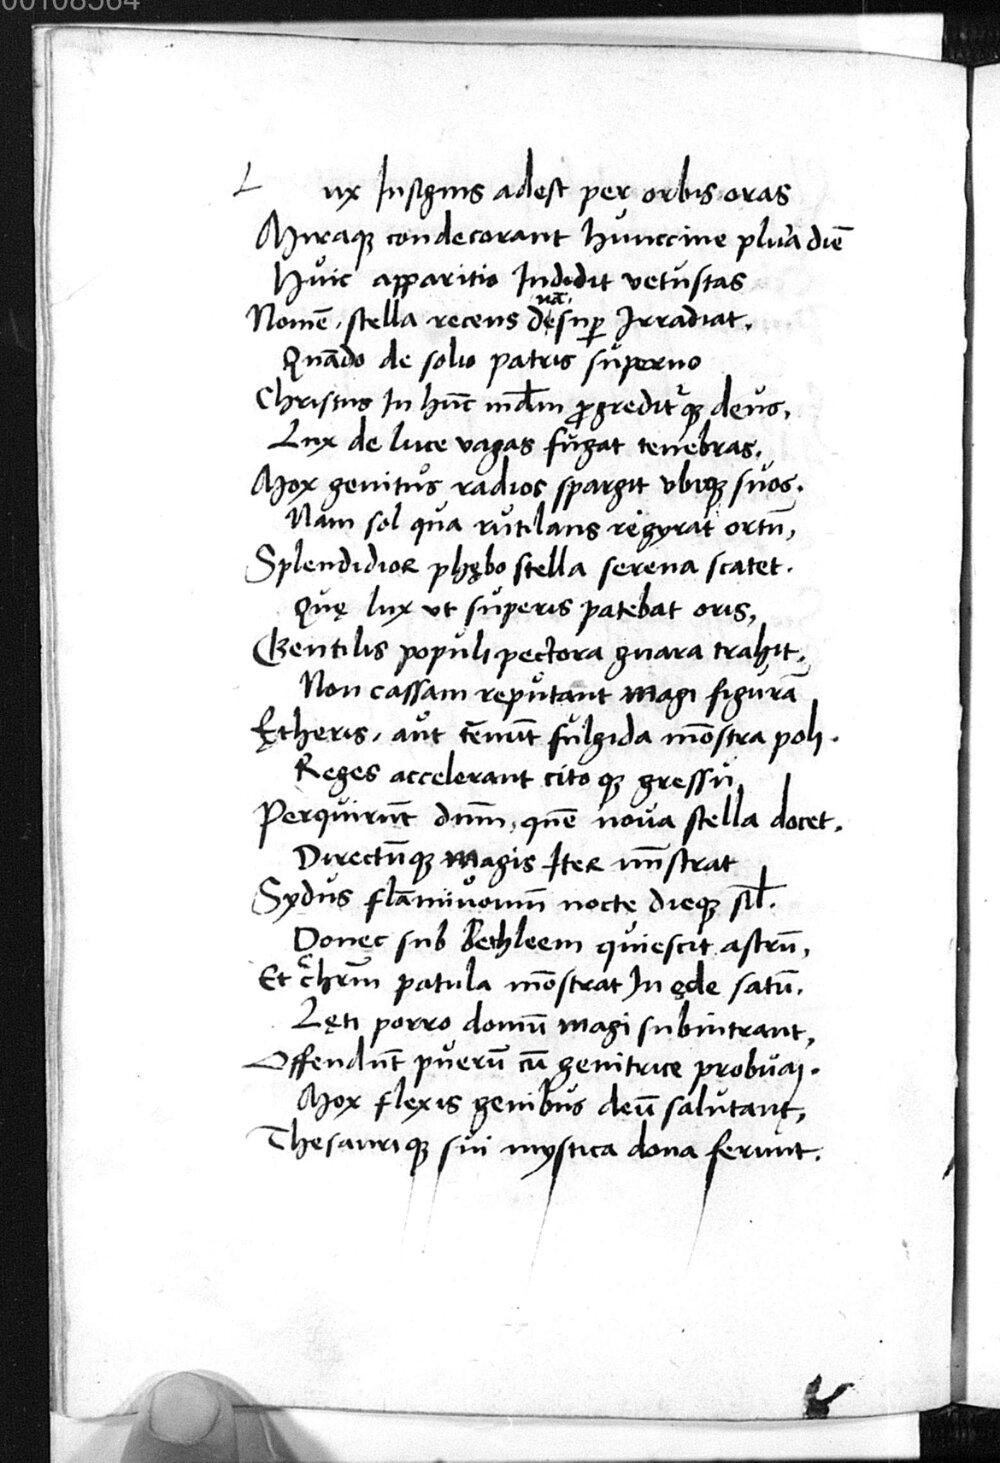 00108564
Lux Insignis adest per orbis oras
Miraq; condecorant hunccine plura diē
Huic apparitio Indidit vetustas
Nomē, stella recens desup nā Irradiat.
Quādo de solio patris superno
Christus In hūc mdm progreditq; deus,
Lux de luce vagas fugat tenebras,
Mox genitus radios spargit vbiq; suos.
Nam sol qua rutilans regyrat ortū,
Splendidior phębo stella serena scatet.
Quę lux vt superis patebat oris,
Gentilis populi pectora gnara trahit.
Non cassam reputant magi figurā
Ętheris, aut tēnūt fulgida mōstra poli.
Reges accelerant cito q; gressu,
Perquirūt dnm, quē nova stella docet.
Directūq; magis Iter mnstrat
Sydus flāmivomū nocte dieq; sil.
Donec sub Bethleem quiescit astrū,
Et chrm patula mōstrat In ęde satū.
Lęti porro domū magi subintrant,
Offendūt puerū cū genitrice probuaj.
Mox flexis genibus deū salutant,
Thesauriq; sui mystica dona ferunt.